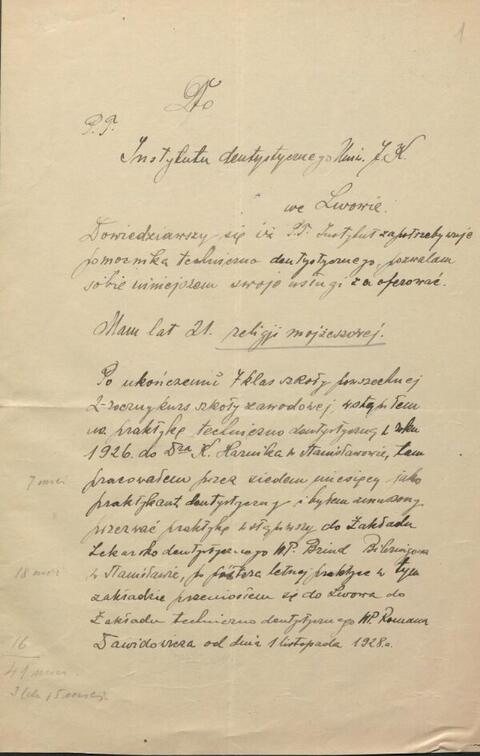 1
Do
P.T.
Instytutu dentystycznego Uniw. J. K.
we Lwowie.
Dowiedziawszy się iż P.T. Instytut zapotrzebywuje
pomocnika techniczno dentystycznego, pozwalam
sobie niniejszem swoje usługi za oferować.
Mam lat 21. religji mojżeszowej.
Po ukończeniu 7 klas szkoły powszechnej
2-roczny kurs szkoły zawodowej, wstąpiłem
na praktykę techniczno dentystyczną z roku
1926. do Dra K. Harnika w Stanisławowie, tam
pracowałem przez siedem miesięcy jako
praktykant dentystyczny i byłem zmuszony
przerwać praktykę wstąpiwszy do Zakładu
7 mies
Lekarsko dentystycznego WP.
w Stanisławie, po letniej praktyce w tym
18 mies
zakładzie przeniosłem się do Lwowa do
Zakładu techniczno dentystycznego WP. Romana
Dawidowicza od dnia 1 listopada 1928 r.
16
41 mies.